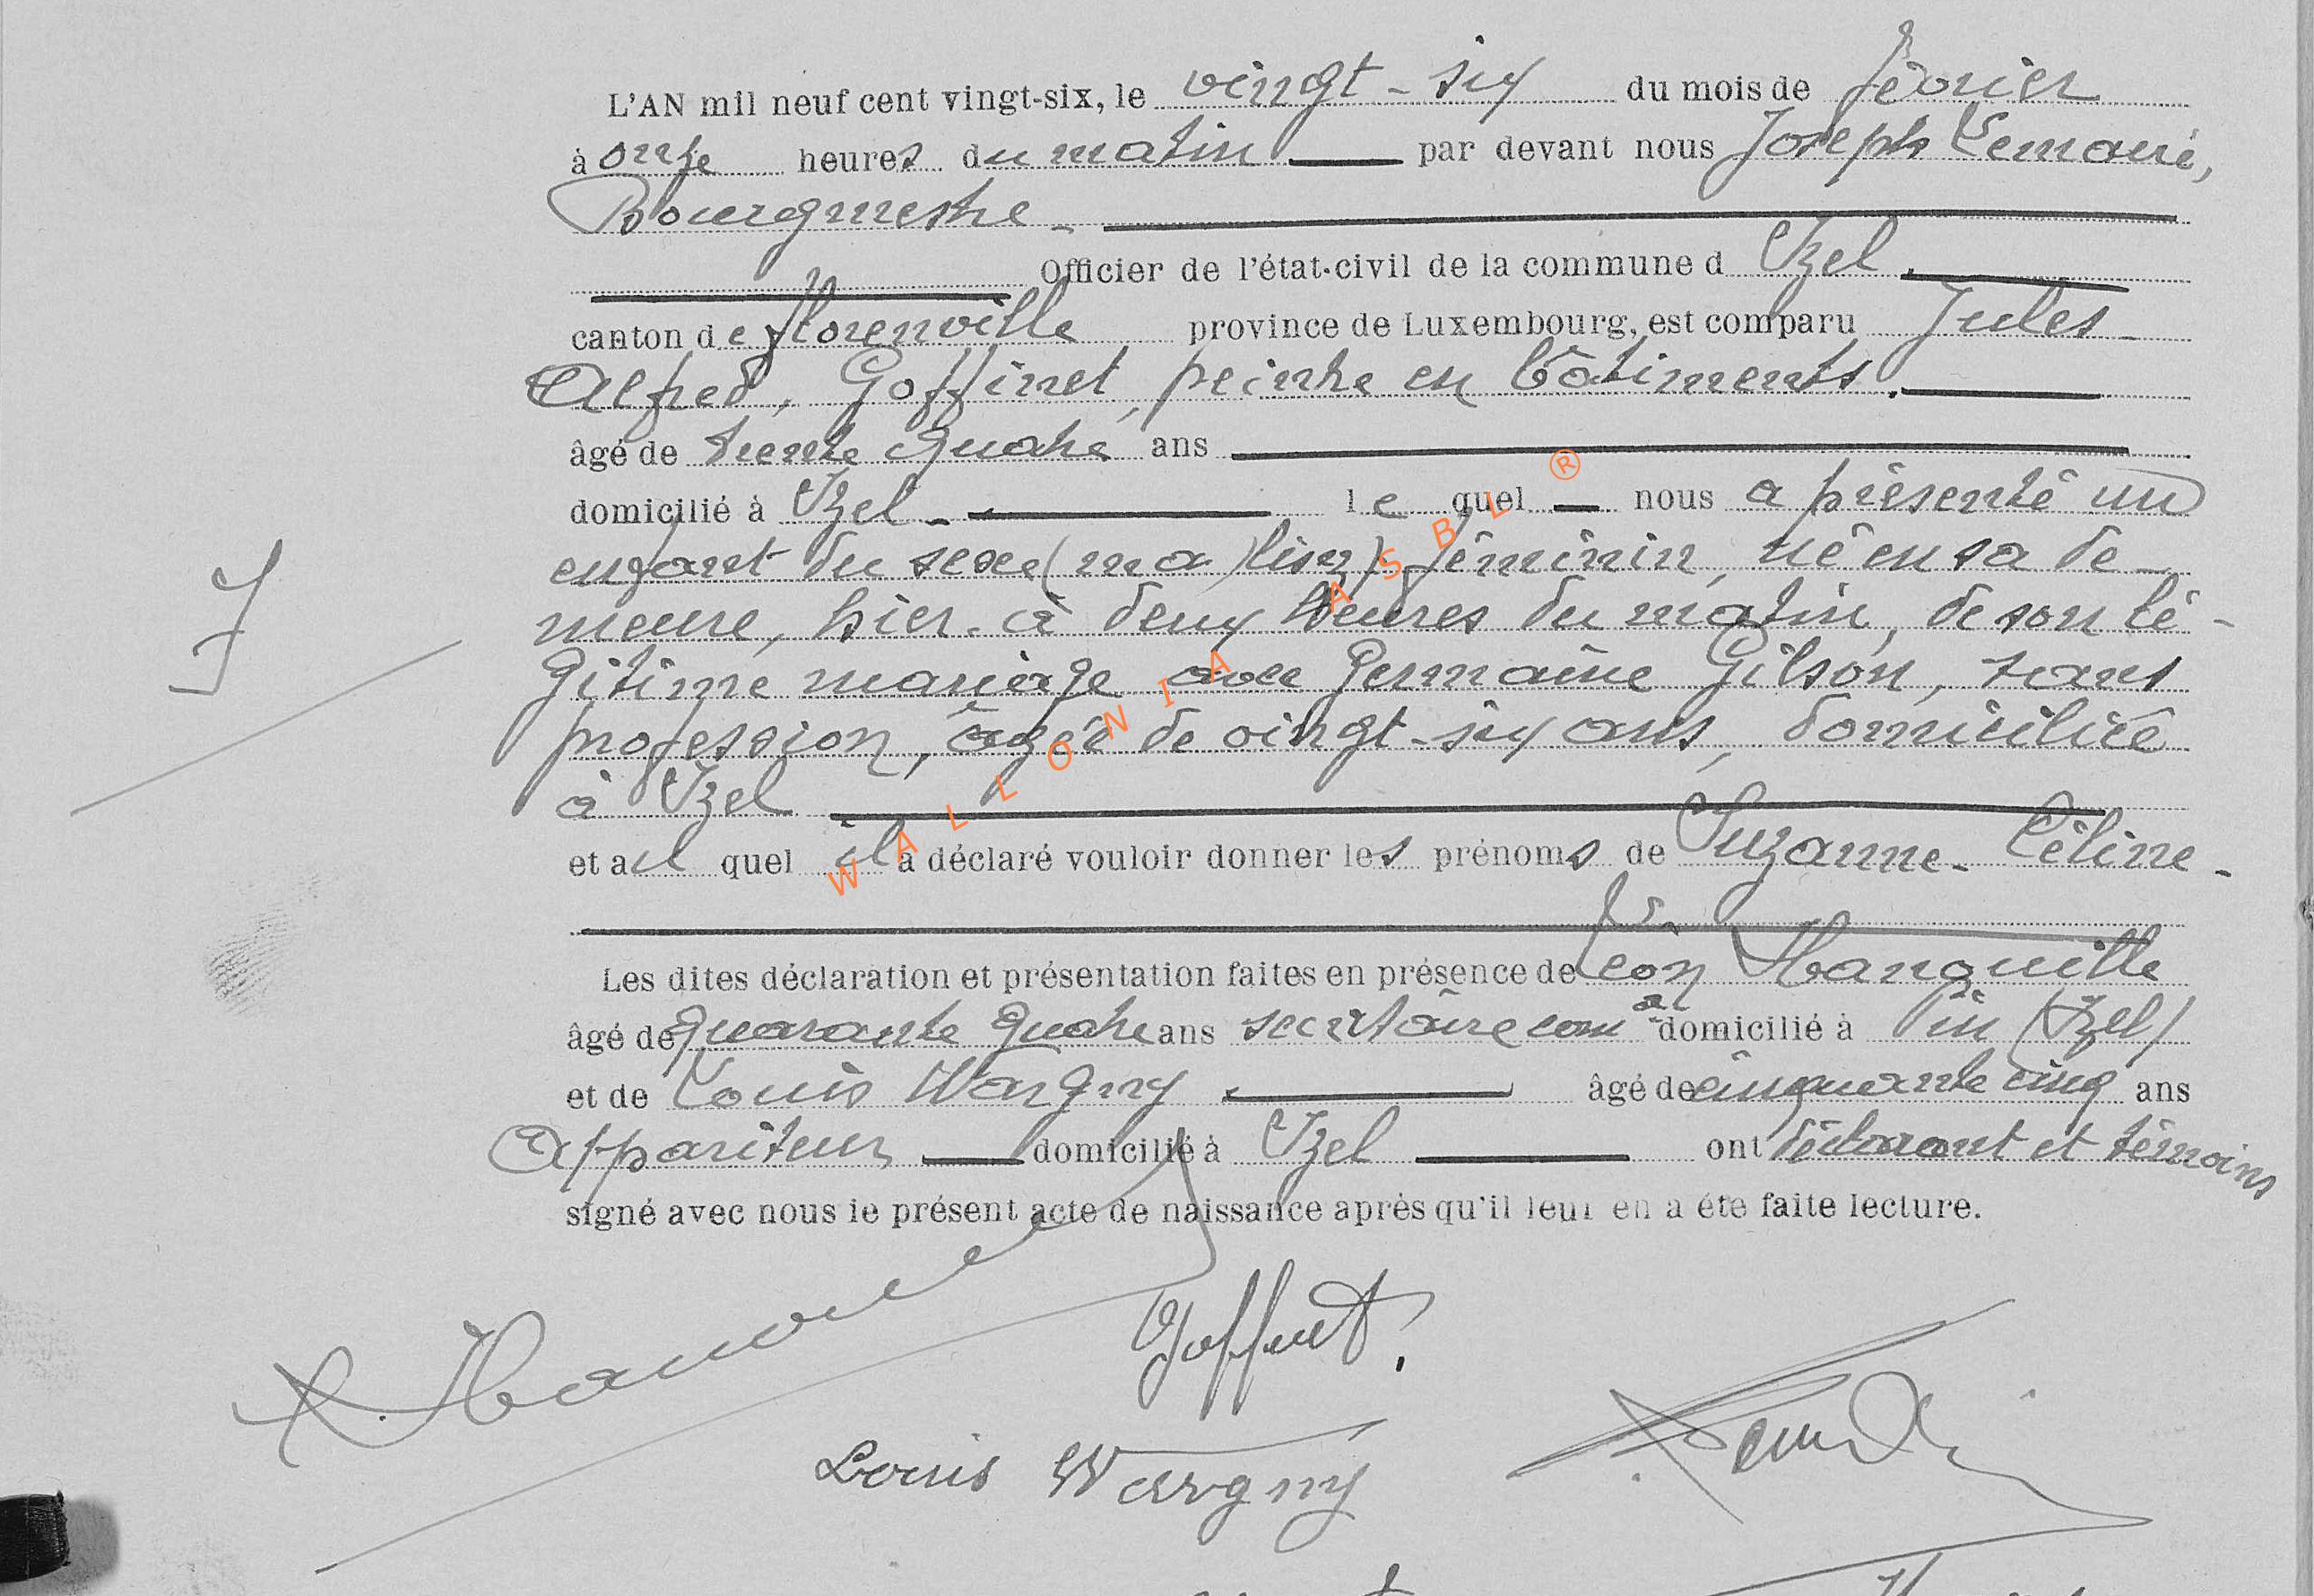 L'AN mil neuf cent vingt-six, le vingt-six du mois de février
à onze heures du matin par devant nous Joseph Lemaire,
Bourgmestre
Officier de l'état-civil de la commune d Izel.
canton de Florenville province de Luxembourg, est comparu Jules
Alfred, Goffinet, peintre en bâtiments.
âgé de trente quatre ans
domicilié à Izel le quel nous a présenté un
enfant du sexe (ma) féminin, né en sa de-
meure, hier à deux heures du matin, de son lé-
gitime mariage avec Germaine Gilson, sans
profession, âgée de vingt-six ans, domiciliée
à Izel
et au quel il a déclaré vouloir donner les prénoms de Suzanne-Céline-
Les dites déclaration et présentation faites en présence de Léon
âgé de quarante quatre ans secrétaire com al domicilié à Pin (Izel)
et de Louis Wargny âgé de cinquante cinq ans
Appariteur domicilié à Izel ont déclarant et témoins
signé avec nous le présent acte de naissance après qu'il leur en a été faite lecture.
Goffinet.
Louis Wargny
WALLONIA ASBL ®